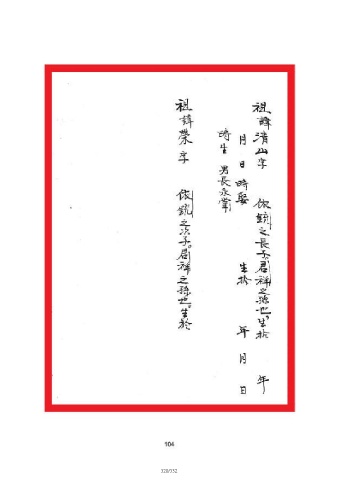 祖諱清山字 俶銃之長子君祥之孫也生於 年
月 日 時娶 生於 年 月 日
時生 男長永掌
祖諱榮字 俶銃之次子君祥之孫也生於
104
320/352